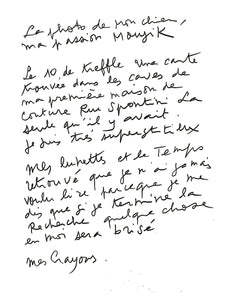 La photo de mon chien,
ma passion Moujik
Le 10 de treffle Une carte
trouvée dans les caves de
ma première maison de
Couture Rue Spontini La
seule qu'il y avait.
je suis très superstitieux
Mes lunettes et le Temps
retrouvé que je n'ai jamais
voulu lire parceque je me
dis que si je termine la
Recherche quelque chose
en moi sera brisé
mes Crayons.